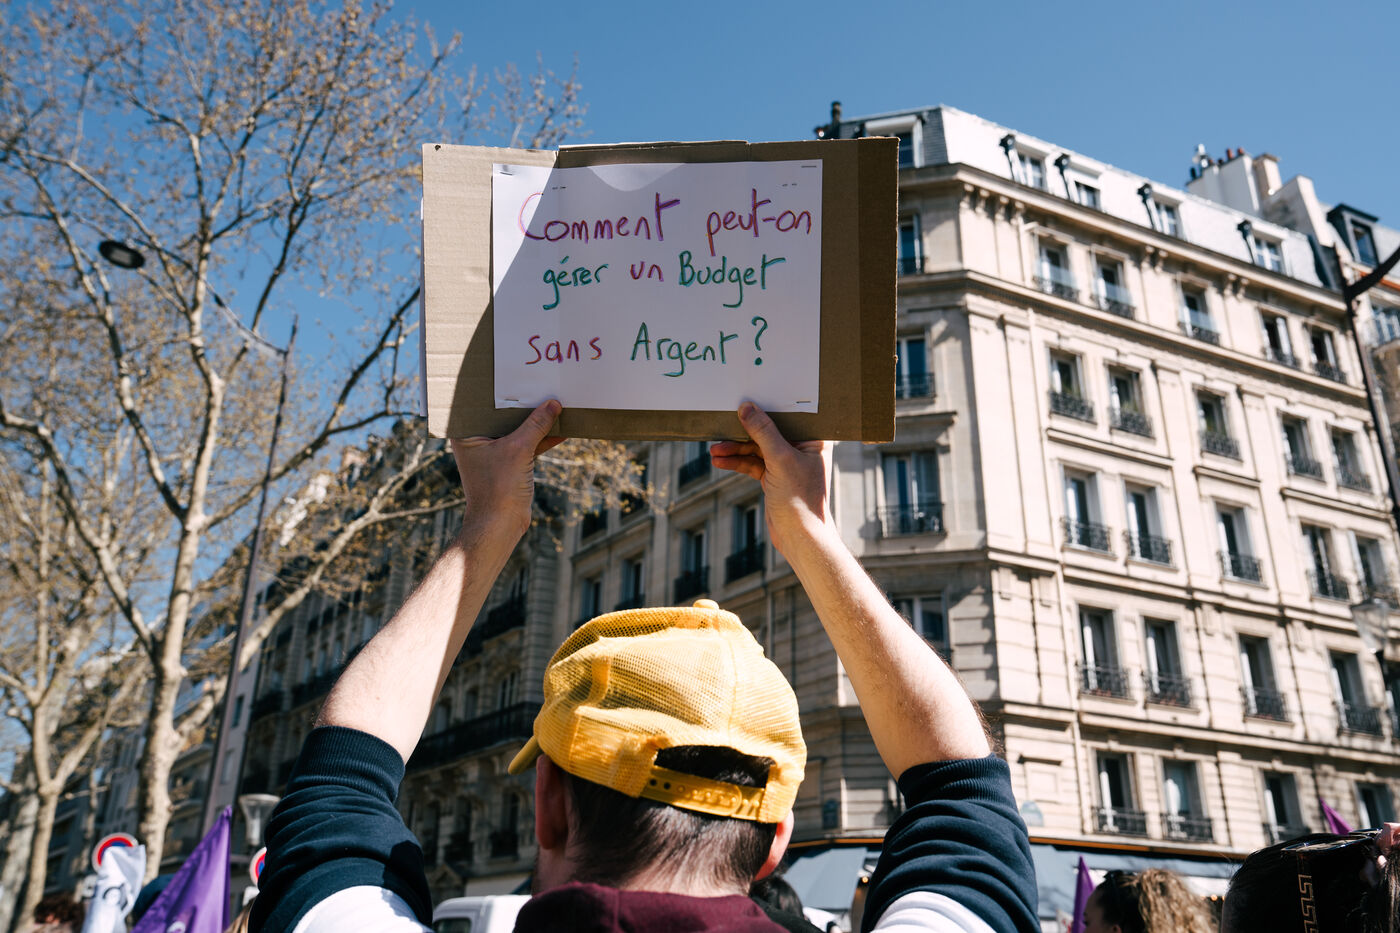 Comment peut-on
gérer un Budget
sans Argent ?